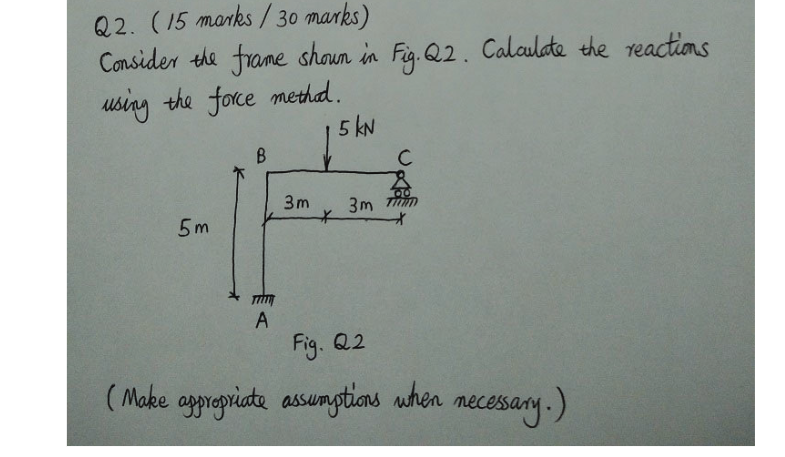 Q2. (15 marks / 30 marks)
Consider the frame shown in Fig. Q2. Calculate the reactions
using the force method.
5 kN
B
C
3m
3m
5m
A
Fig. Q2
(Make appropriate assumptions when necessary.)